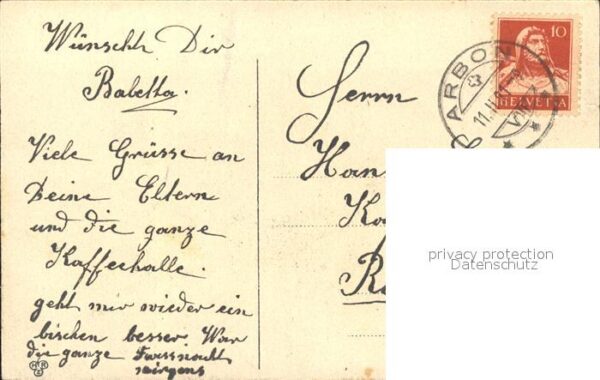 Wünscht Dir
Babetta.
Viele Grüsse an
Deine Eltern
und die ganze
Kaffeehalle.
geht mir wieder ein
bischen besser. War
die ganze Fassnacht
nirgens
Herrn
Han
Ka
R
10
HELVETIA
ARBON
11.II.
VIII-
privacy protection
Datenschutz